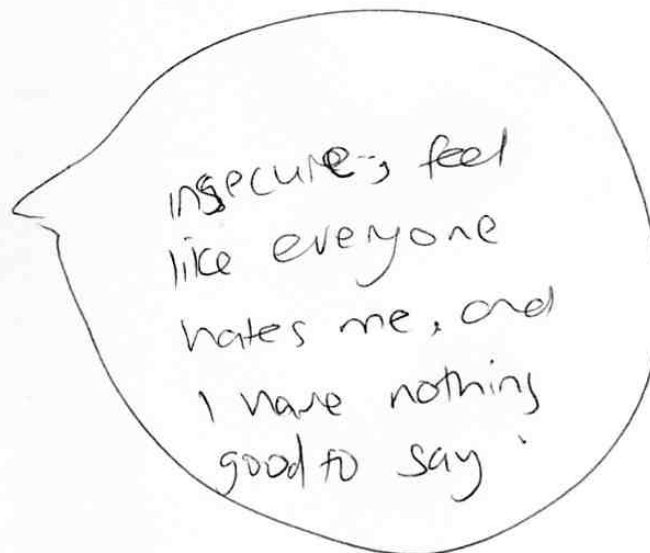 insecure, feel
like everyone
hates me, and
I have nothing
good to say.